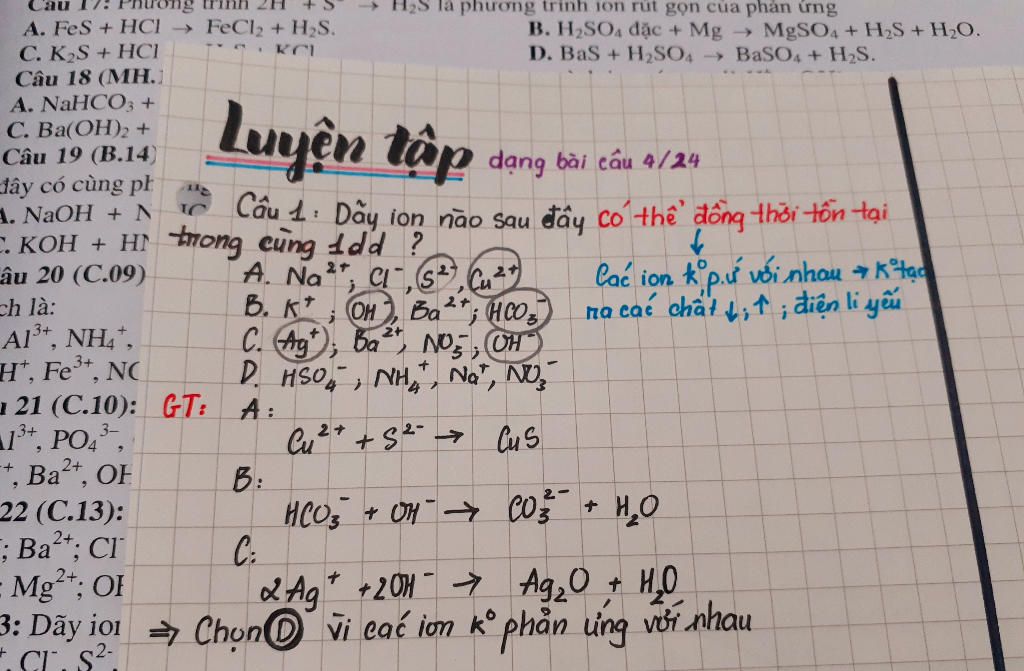 Câu 17: Phương trình 2H⁺ + S²⁻ → H₂S là phương trình ion rút gọn của phản ứng
A. FeS + HCl → FeCl₂ + H₂S.
B. H₂SO₄ đặc + Mg → MgSO₄ + H₂S + H₂O.
C. K₂S + HCl
D. BaS + H₂SO₄ → BaSO₄ + H₂S.
Câu 18 (MH.
A. NaHCO₃ +
C. Ba(OH)₂ +
Câu 19 (B.14)
đây có cùng
A. NaOH + N
C. KOH + HN
âu 20 (C.09)
ch là:
Al³⁺, NH₄⁺,
H⁺, Fe³⁺, NO
21 (C.10):
Al³⁺, PO₄³⁻,
⁺, Ba²⁺, OH
22 (C.13):
; Ba²⁺; Cl⁻
; Mg²⁺; OH
3: Dãy ion
⁺, Cl⁻, S²⁻
Luyện tập dạng bài câu 4/24
Câu 1: Dãy ion nào sau đây có thể đồng thời tồn tại
trong cùng 1dd ?
A. Na²⁺; Cl⁻, S²⁻, Cu²⁺
B. K⁺; OH⁻, Ba²⁺; HCO₃⁻
C. Ag⁺; Ba²⁺, NO₃⁻; OH⁻
D. HSO₄⁻; NH₄⁺, Na⁺, NO₃⁻
↓
Các ion k° p.ư với nhau → k° tạo
ra các chất ↓; ↑; điện li yếu
GT: A:
Cu²⁺ + S²⁻ → CuS
B:
HCO₃⁻ + OH⁻ → CO₃²⁻ + H₂O
C:
2Ag⁺ + 2OH⁻ → Ag₂O + H₂O
⇒ Chọn D vì các ion k° phản ứng với nhau